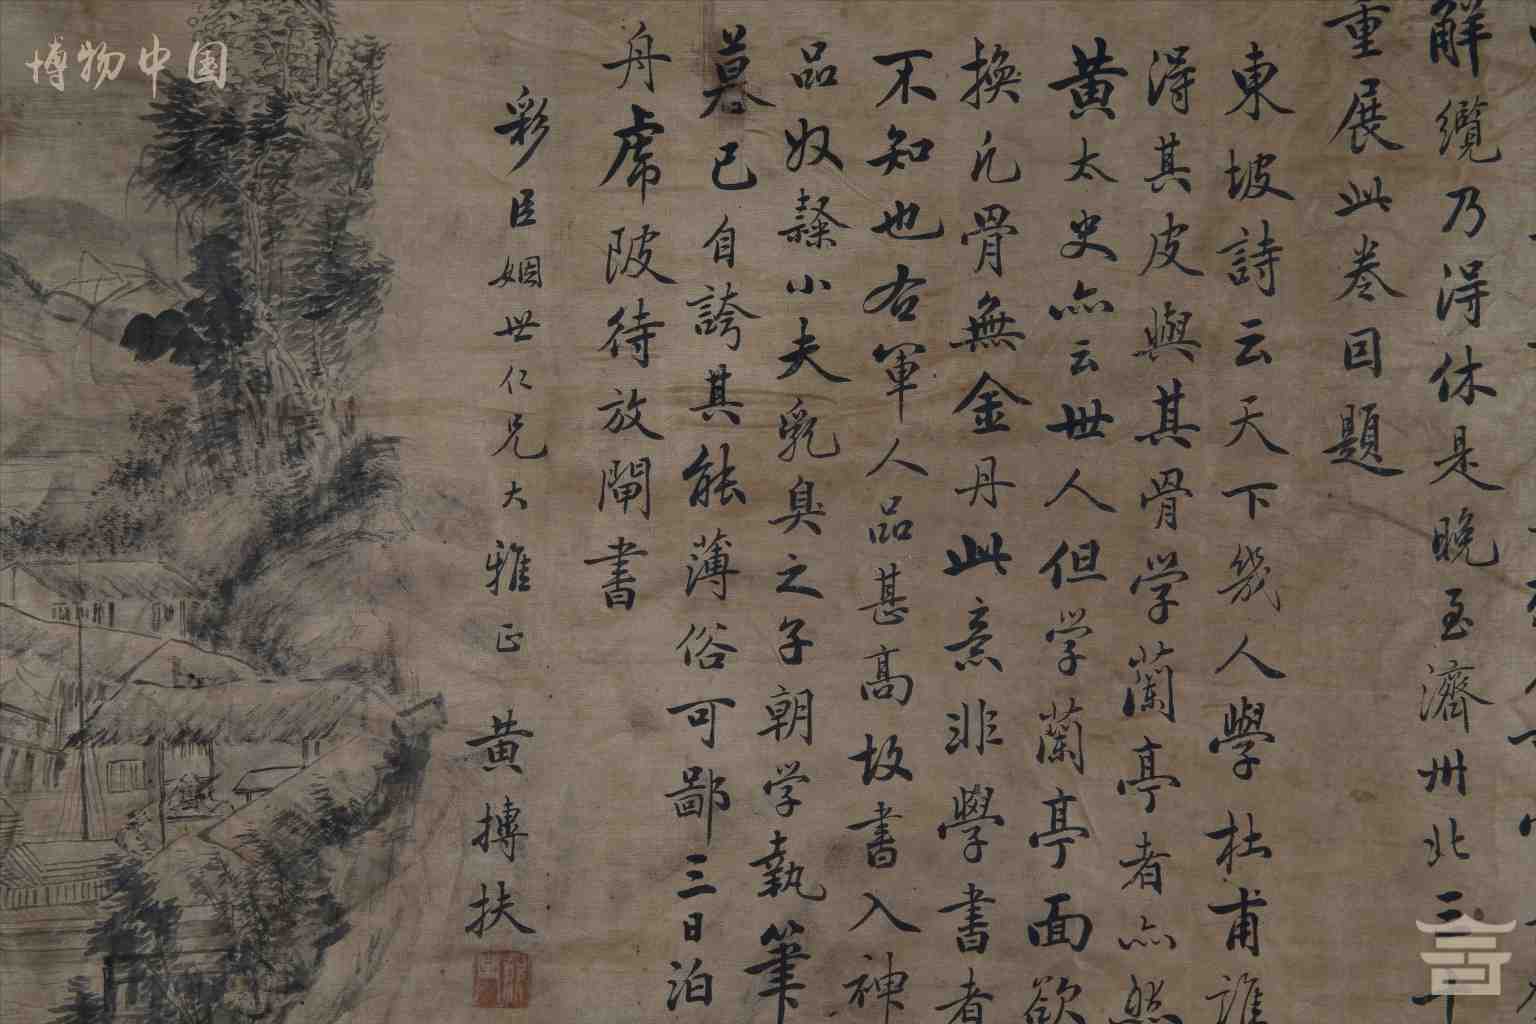 解纜乃得休是晚至濟州北三十
重展此卷因題
東坡詩云天下幾人學杜甫誰
得其皮與其骨学蘭亭者亦然
黃太史亦云世人但学蘭亭面欲
換凡骨無金丹此意非學書者
不知也右軍人品甚高故書入神
品奴隸小夫乳臭之子朝学執筆
暮已自誇其能薄俗可鄙三日泊
舟虎陂待放閘書
彩臣姻世仁兄大雅正 黃摶扶
博物中国